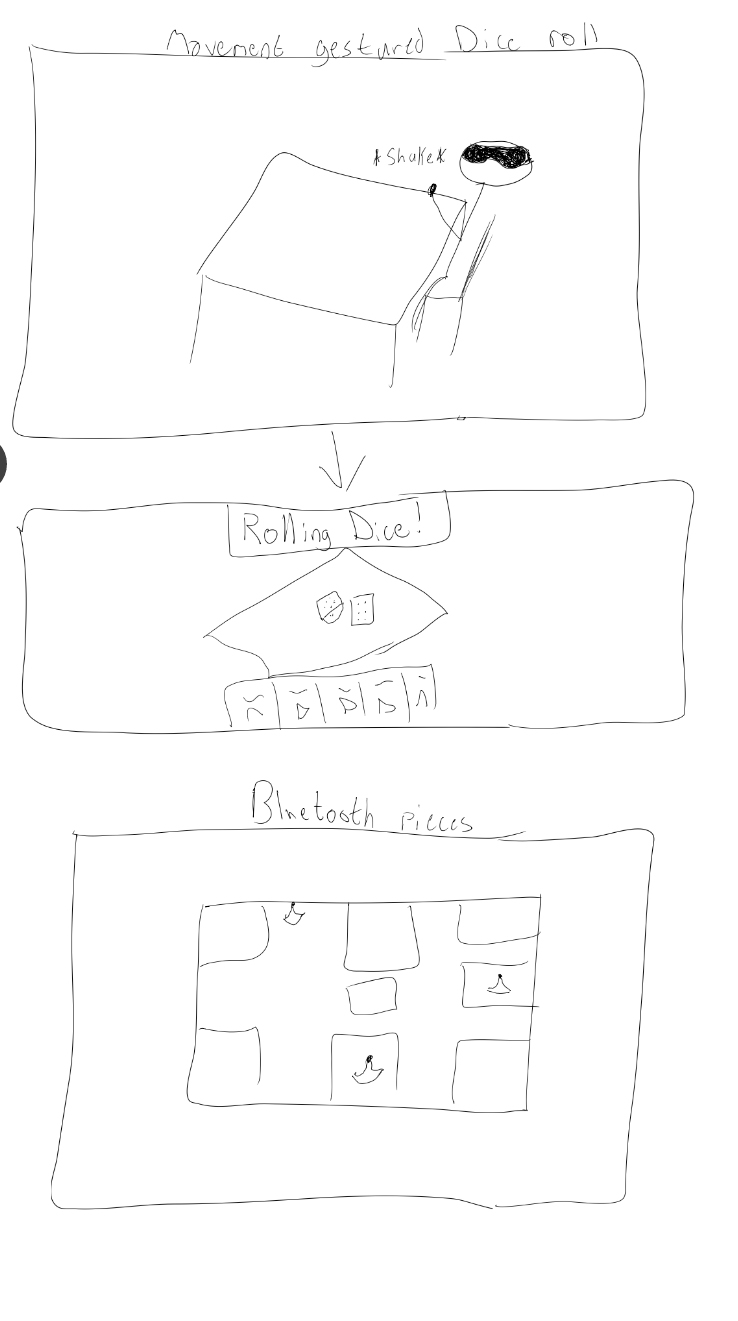 Movement gestured Dice roll
*Shake*
Rolling Dice!
Bluetooth pieces